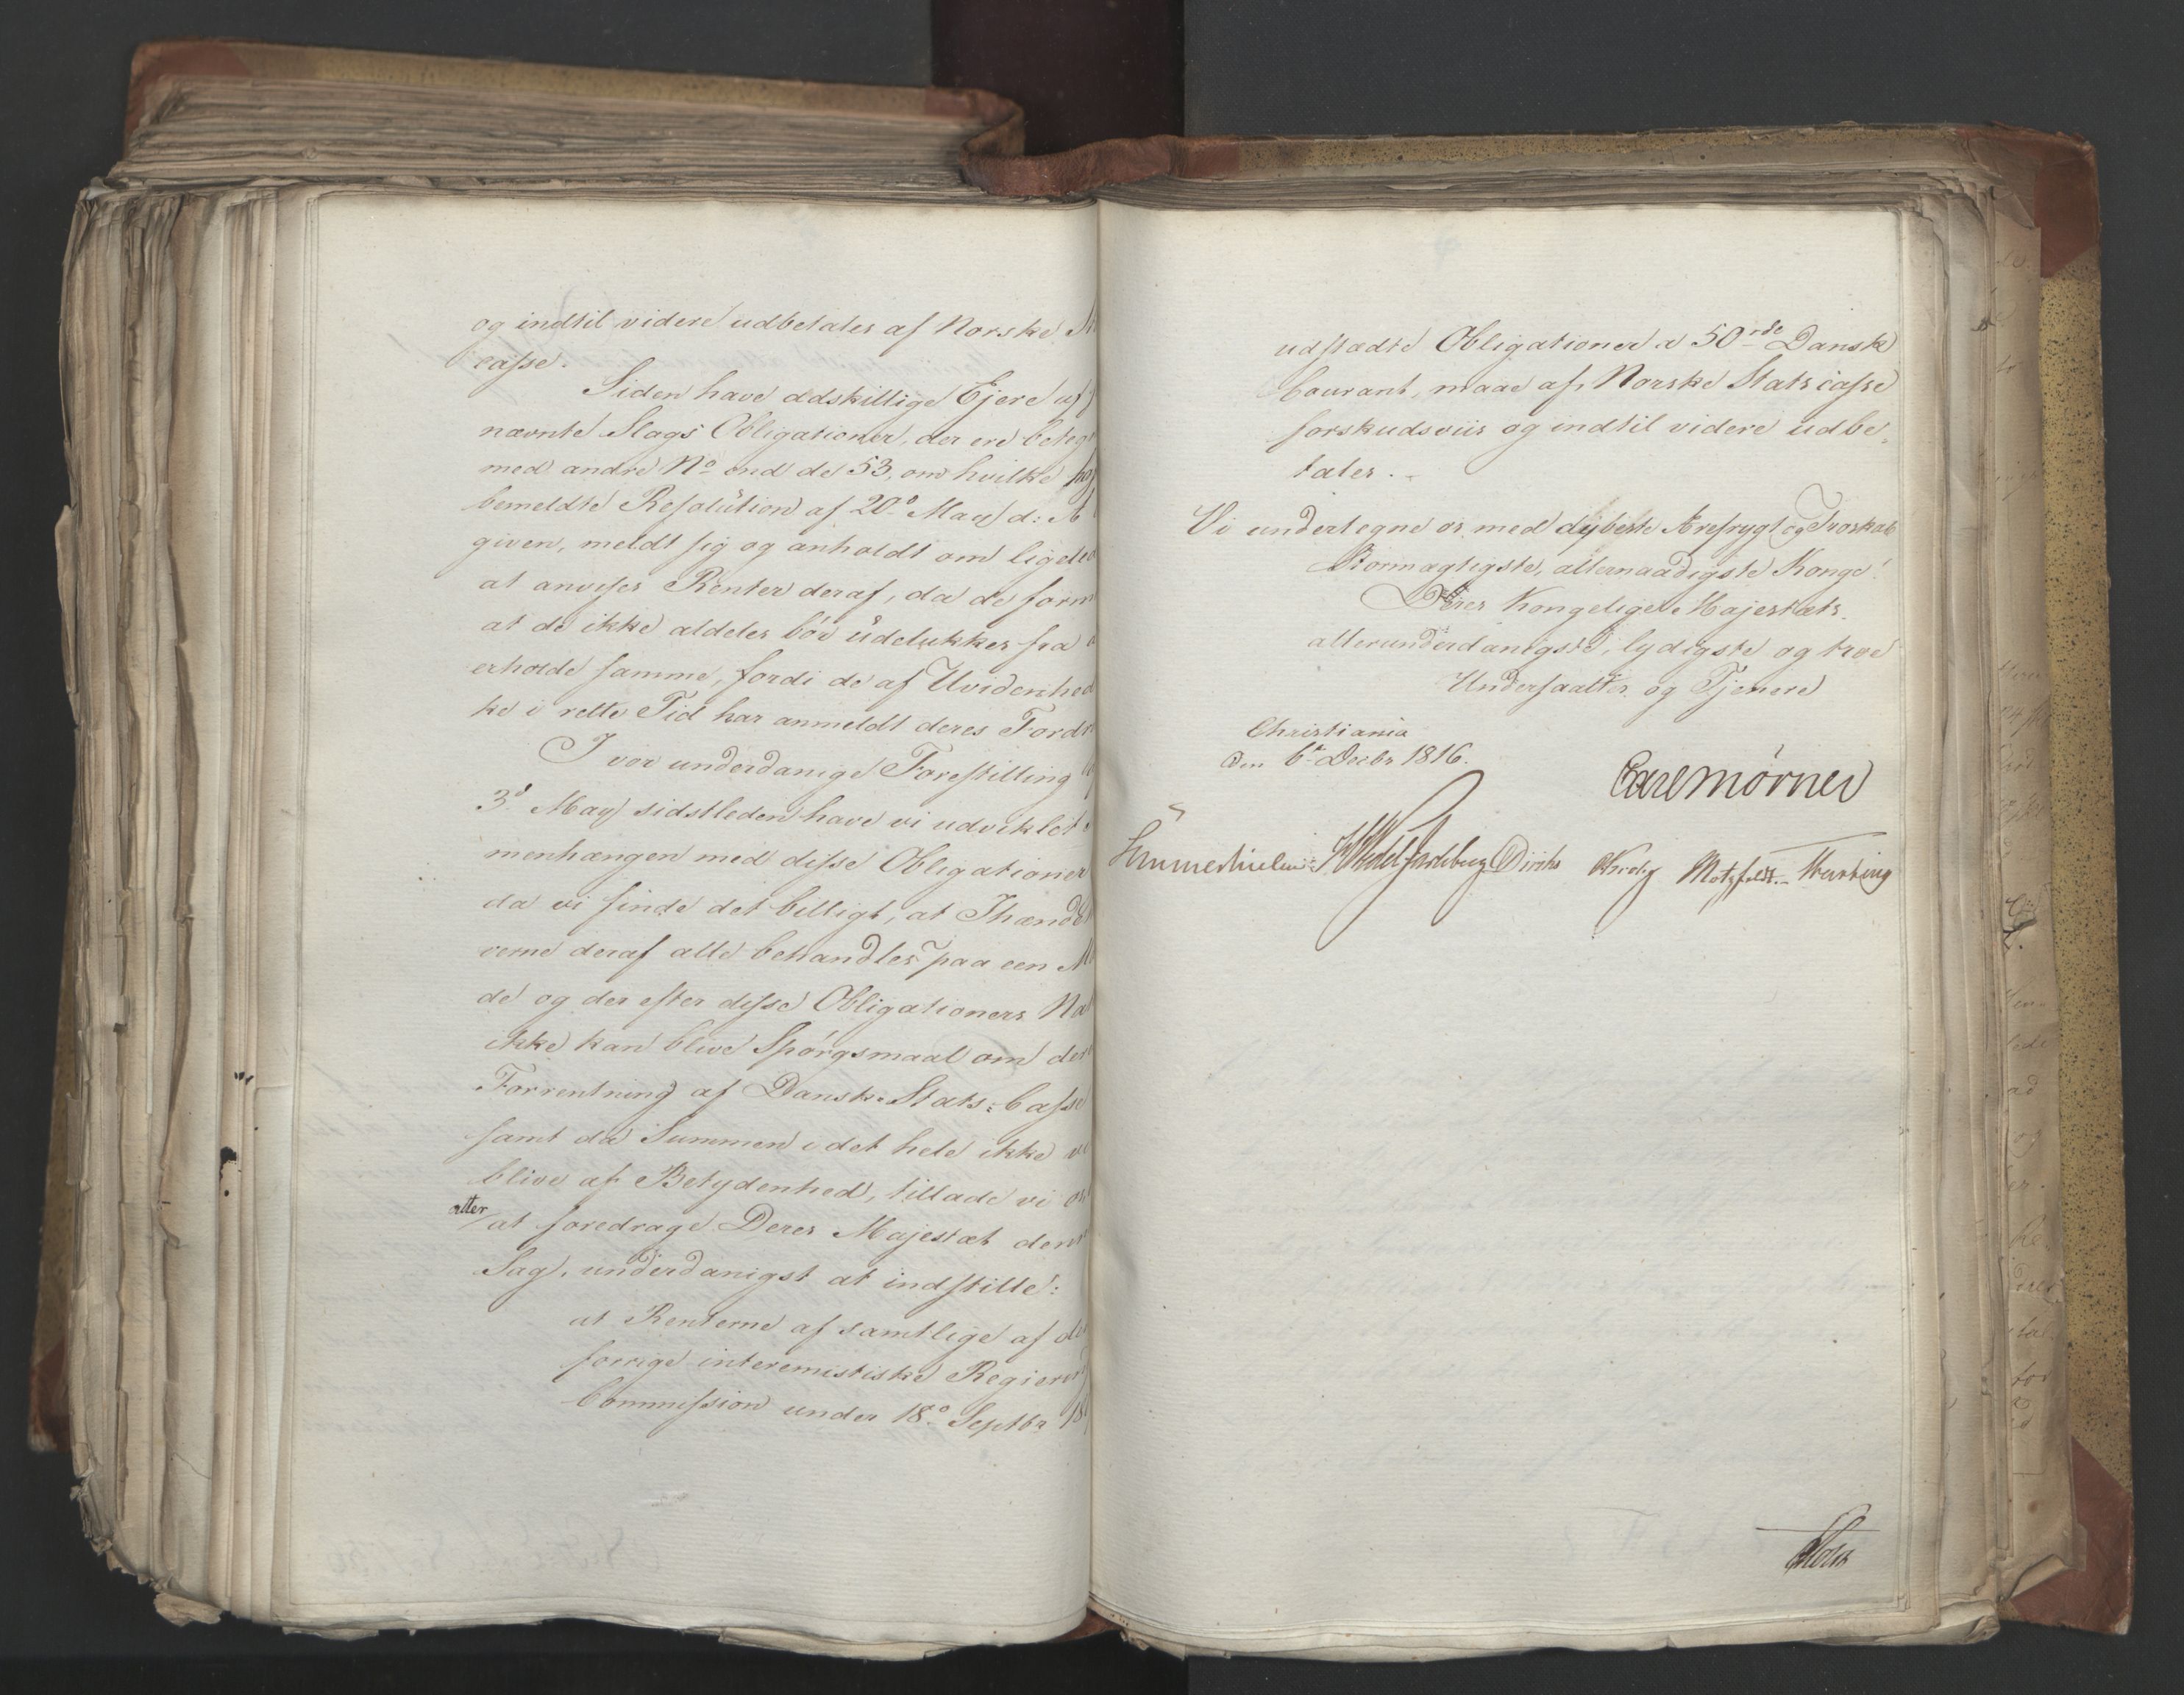 og indtil videre udbetales af Norske St
casse.
Siden have adskillige Ejere af
nævnte Slags Obligationer, der ere beteg
med andre No end de 53, om hvilke høy
bemeldte Resolution af 20de May d: A
given, meldt sig og anholdt om ligele
at anvises Renter deraf, da de form
at de ikke aldeles bör udelukkes fra a
erholde samme, fordi de af Uvidenhed
ke i rette Tid har anmeldt deres Fordr
I vor underdanige Forestilling
3d May sidstleden have vi udviklet
menhængen med disse Obligationer
da vi finde det billigt, at Ihænde
verne deraf alle behandles paa een M
de og der efter disse Obligationers Na
ikke kan blive Spörgsmaal om der
Forrentning af Dansk Stats-Casse
samt da Summen i det hele ikke vi
blive af Betydenhed, tillade vi os
atter
at foredrage Deres Majestæt denn
Sag, underdanigst at indstille:
at Renterne af samtlige af de
forrige interemistiske Regierin
Commission under 18de Septbr 18
udstædte Obligationer a 50 rd Dansk
Courant, maae af Norske Statscasse
forskudsviis og indtil videre udbe-
tales.
Vi undertegne os med dybeste Ærefrygt og Troskab
Stormægtigste, allernaadigste Konge!
Deres Kongelige Majestæts
allerunderdanigste, lydigste og troe
Undersaatter og Tjenere
Christiania
den 6te Decbr 1816.
Carl Mörner
Sommerhielm Wedel Jarlsberg Diriks Krog Motzfeldt
Holst